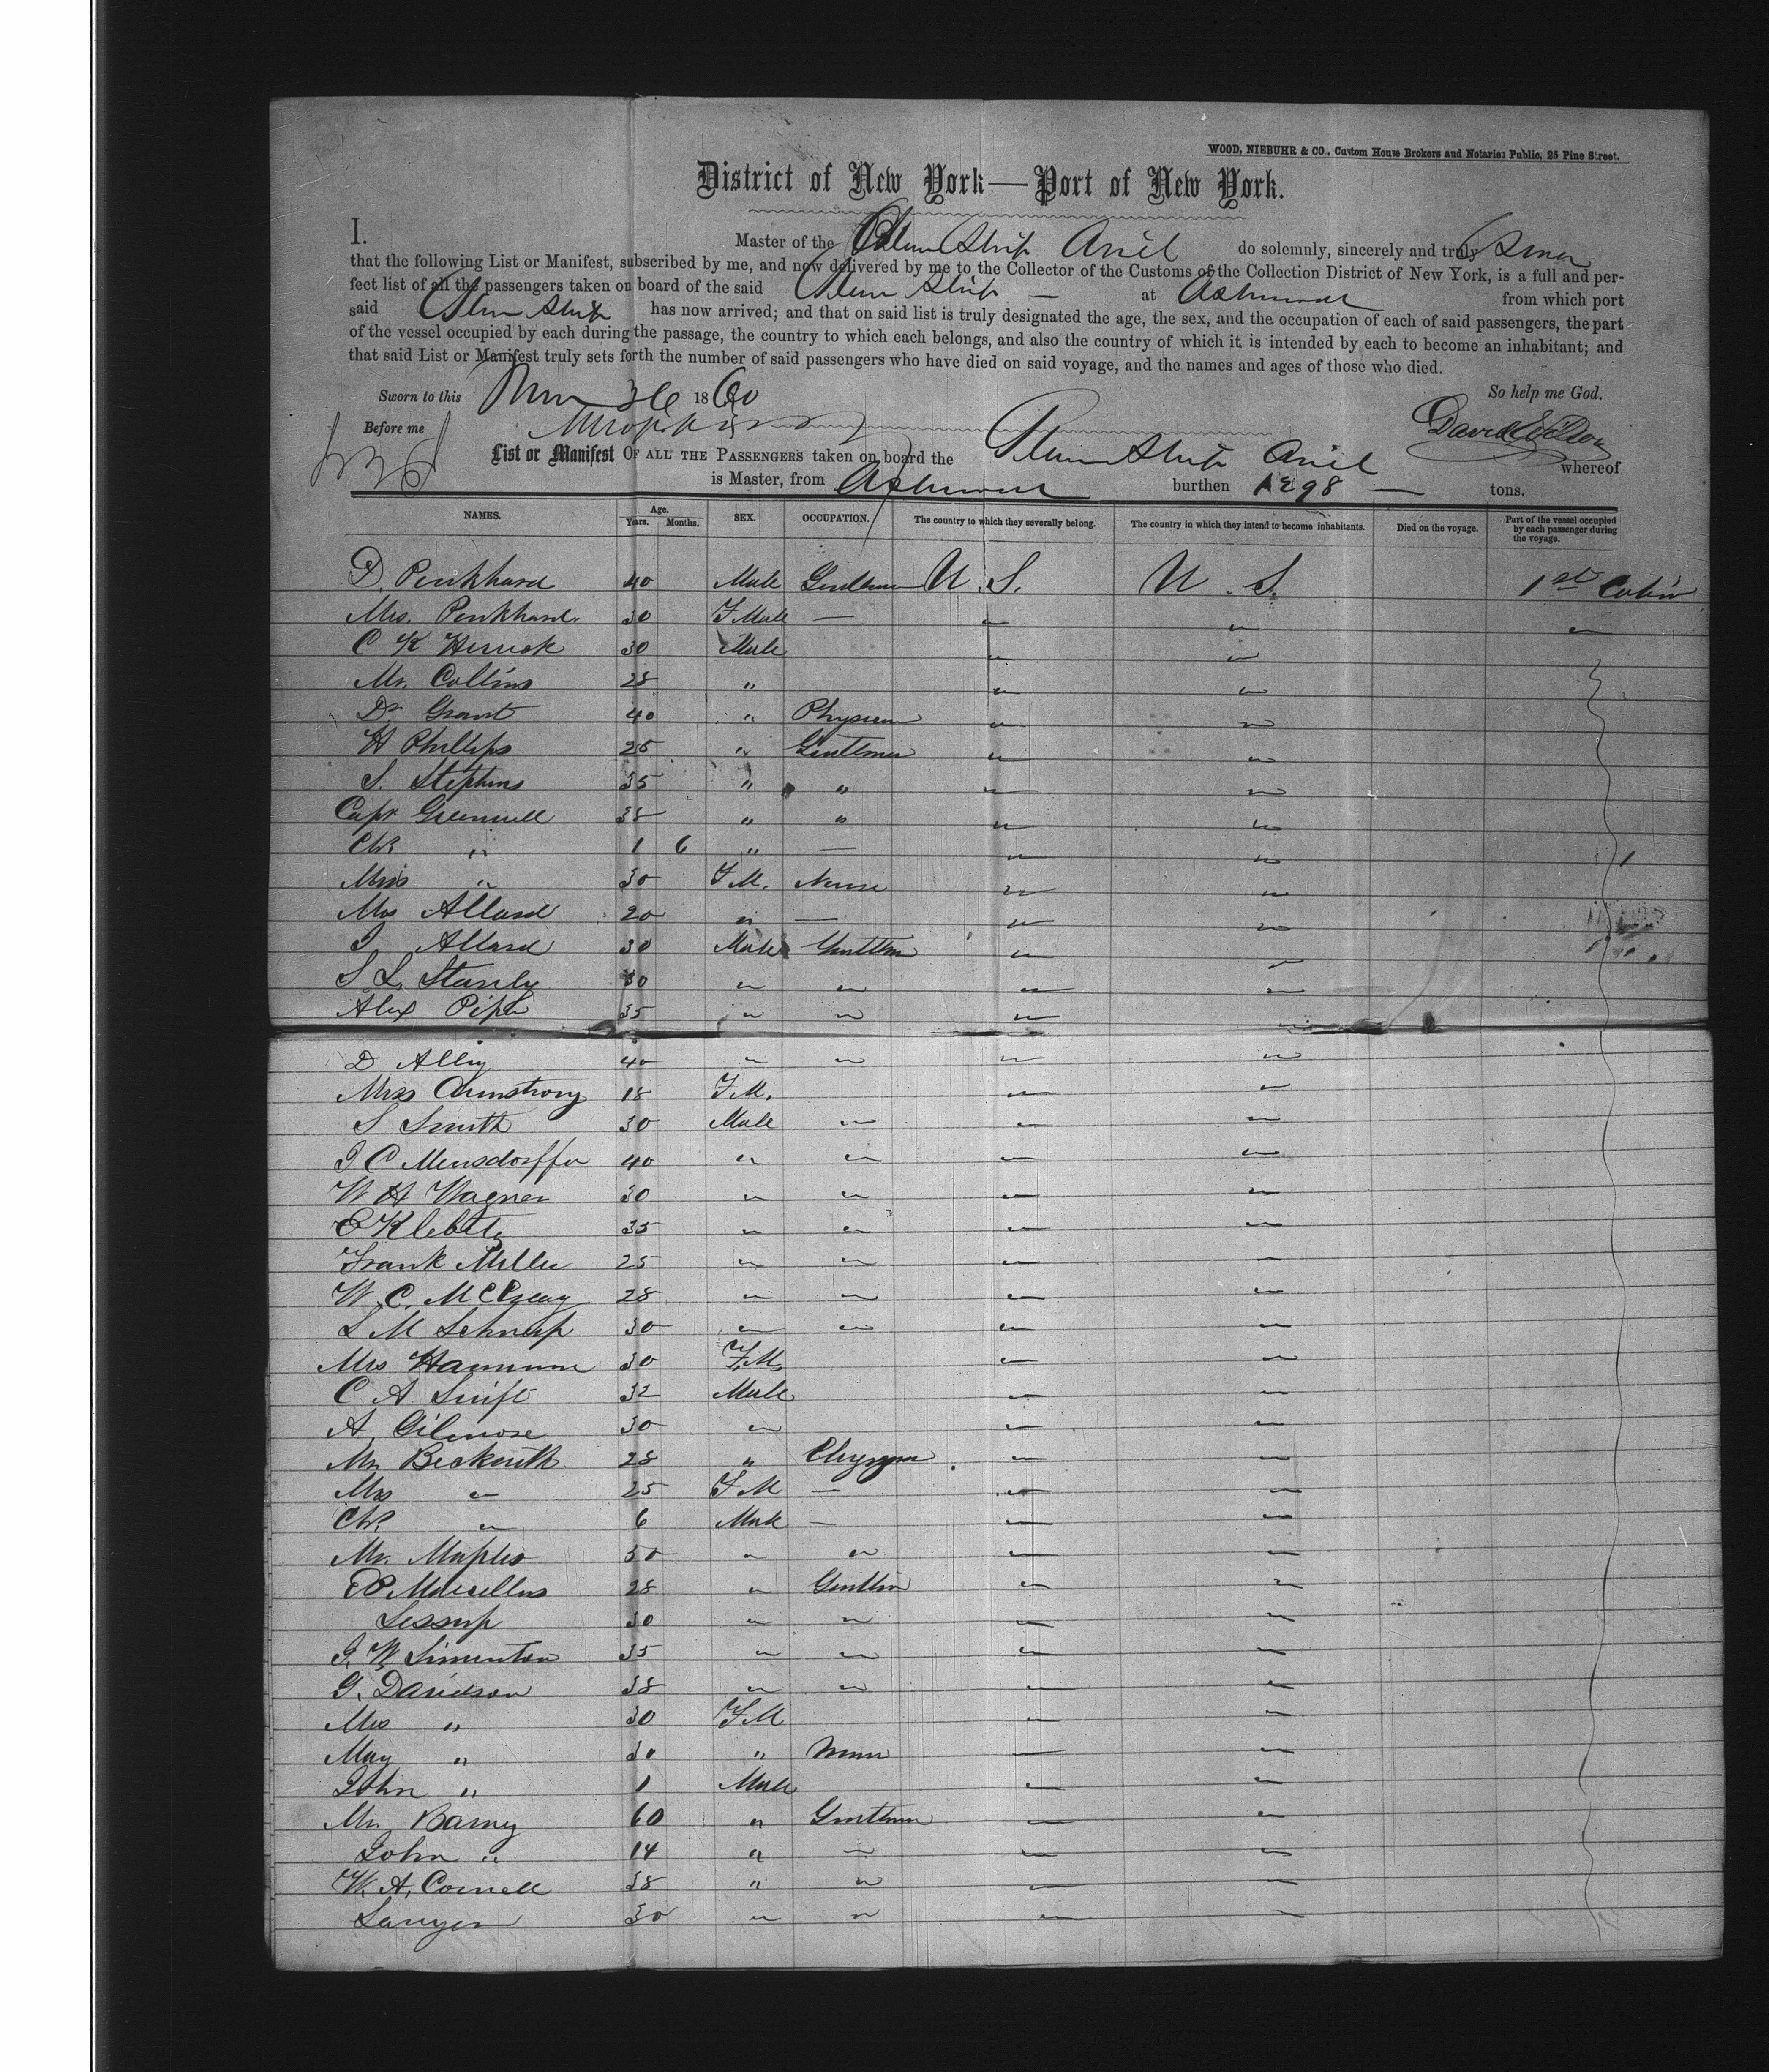 WOOD, NIEBUHR & CO., Custom House Brokers and Notaries Public, 25 Pine Street.
District of New York—Port of New York.
I. Master of the Steam Ship Ariel do solemnly, sincerely and truly Swear
that the following List or Manifest, subscribed by me, and now delivered by me to the Collector of the Customs of the Collection District of New York, is a full and per-
fect list of all the passengers taken on board of the said Steam Ship — at Aspinwall from which port
said Steam Ship has now arrived; and that on said list is truly designated the age, the sex, and the occupation of each of said passengers, the part
of the vessel occupied by each during the passage, the country to which each belongs, and also the country of which it is intended by each to become an inhabitant; and
that said List or Manifest truly sets forth the number of said passengers who have died on said voyage, and the names and ages of those who died.
Sworn to this 26 1860 So help me God.
Before me David Wilson
List or Manifest OF ALL THE PASSENGERS taken on board the Steam Ship Ariel whereof
is Master, from Aspinwall burthen 1298 — tons.
NAMES. Age. Years. Months. SEX. OCCUPATION. The country to which they severally belong. The country in which they intend to become inhabitants. Died on the voyage. Part of the vessel occupied by each passenger during the voyage.
D. Penkhard 40 Male Gentleman U.S. U.S. 1st Cabin
Mrs. Penkhard 30 F Male — " " "
C K Herrick 30 Male " "
Mr. Collins 28 " " "
Dr Grant 40 " Physician " "
H Phillips 25 " Gentleman " "
S. Stephens 35 " " " "
Capt Greenwell 38 " " " "
Chd " 1 6 " — " "
Miss " 30 F.M. Nurse " "
Mrs Allard 20 " — " "
J Allard 30 Male Gentleman " "
S L. Stanly 30 " " " "
Alex Piper 35 " " " "
D Alley 40 " " " "
Miss Armstrong 18 F.M. " "
S Smith 30 Male " " "
J C Mensdorffer 40 " " " "
W H Wagner 30 " " " "
E 35 " " " "
Frank Miller 25 " " " "
W. C. 28 " " " "
L M Schnap 30 " " " "
Mrs 30 F.M. " "
C A Swift 32 Male " "
A. Gilmore 30 " " "
Mr Beckwith 28 " Clergyman " "
Mrs " 25 F M — " "
Chd " 6 Male — " "
Mr. Maples 50 " " " "
Marcellus 28 " Gentlm " "
Jessup 30 " " " "
J. W. Simonton 35 " " " "
G. Davidson 38 " " " "
Mrs " 30 F M " "
May " 30 " Nurse " "
John " 1 Male " "
Mr Barney 60 " Gentleman " "
John " 14 " — " "
W. A. Cornell 38 " " " "
Sawyer 30 " " " "